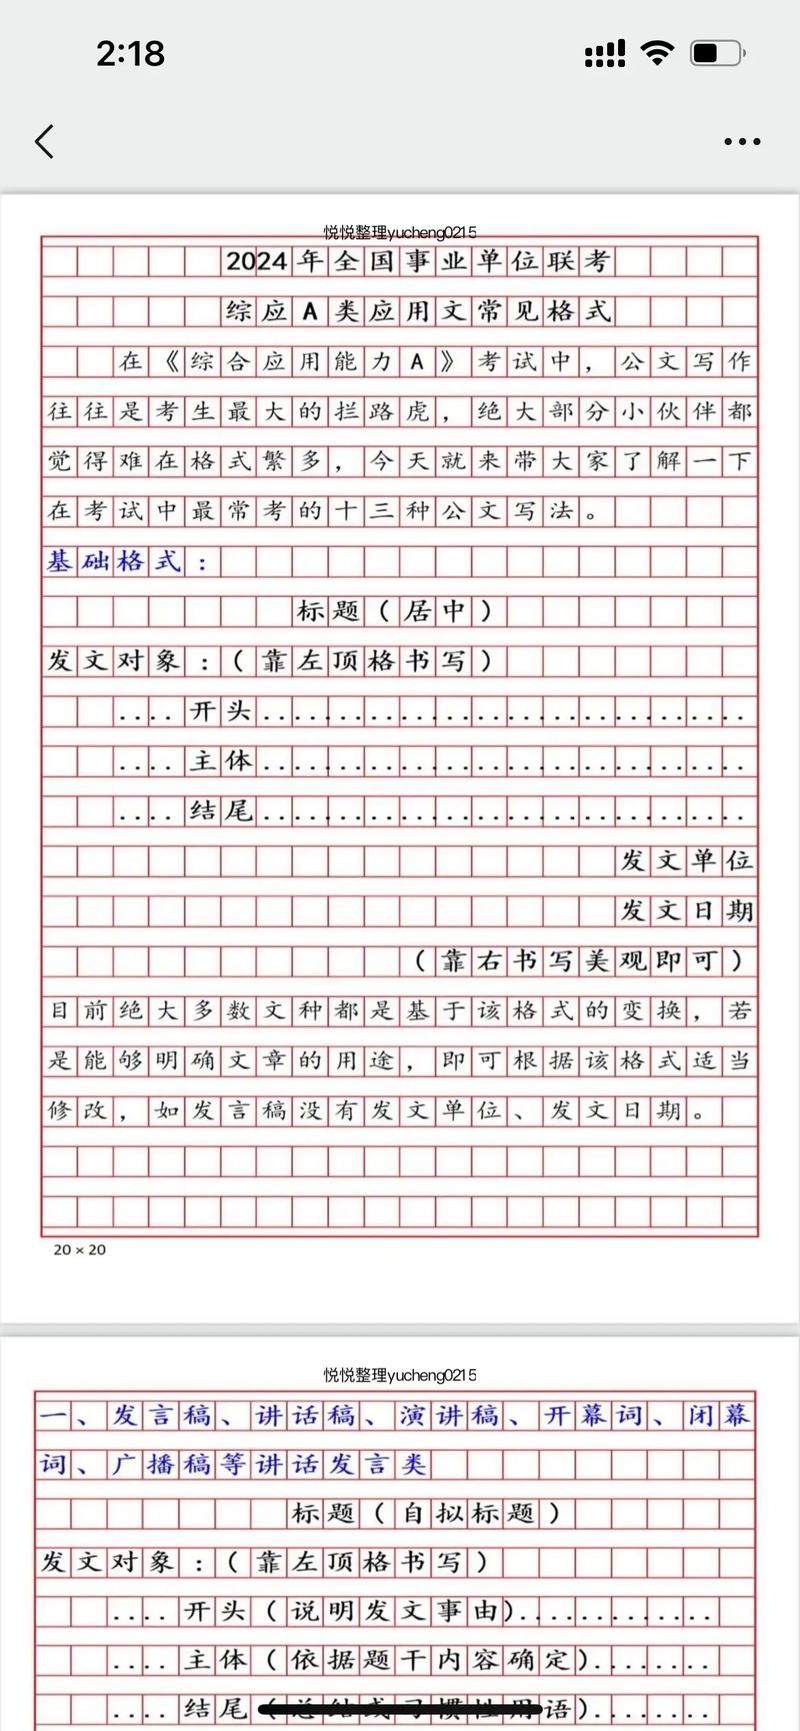 2:18
悦悦整理yucheng0215
2024年全国事业单位联考
综应A类应用文常见格式
在《综合应用能力A》考试中，公文写作
往往是考生最大的拦路虎，绝大部分小伙伴都
觉得难在格式繁多，今天就来带大家了解一下
在考试中最常考的十三种公文写法。
基础格式：
标题（居中）
发文对象：（靠左顶格书写）
....开头...........................
....主体...........................
....结尾...........................
发文单位
发文日期
（靠右书写美观即可）
目前绝大多数文种都是基于该格式的变换，若
是能够明确文章的用途，即可根据该格式适当
修改，如发言稿没有发文单位、发文日期。
20×20
悦悦整理yucheng0215
一、发言稿、讲话稿、演讲稿、开幕词、闭幕
词、广播稿等讲话发言类
标题（自拟标题）
发文对象：（靠左顶格书写）
....开头（说明发文事由）...........
....主体（依据题干内容确定）.......
....结尾（总结或习惯性用语）.......